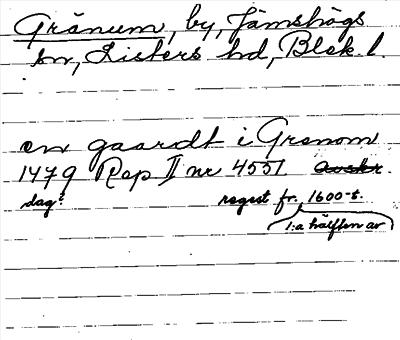 Gränum, by, Jämshögs
sn, Listers hd, Blek. l.
en gaardt i Granom
1479 Rep II nr 4551 Avskr.
dag? regest fr. 1600-t.
1:a hälften av